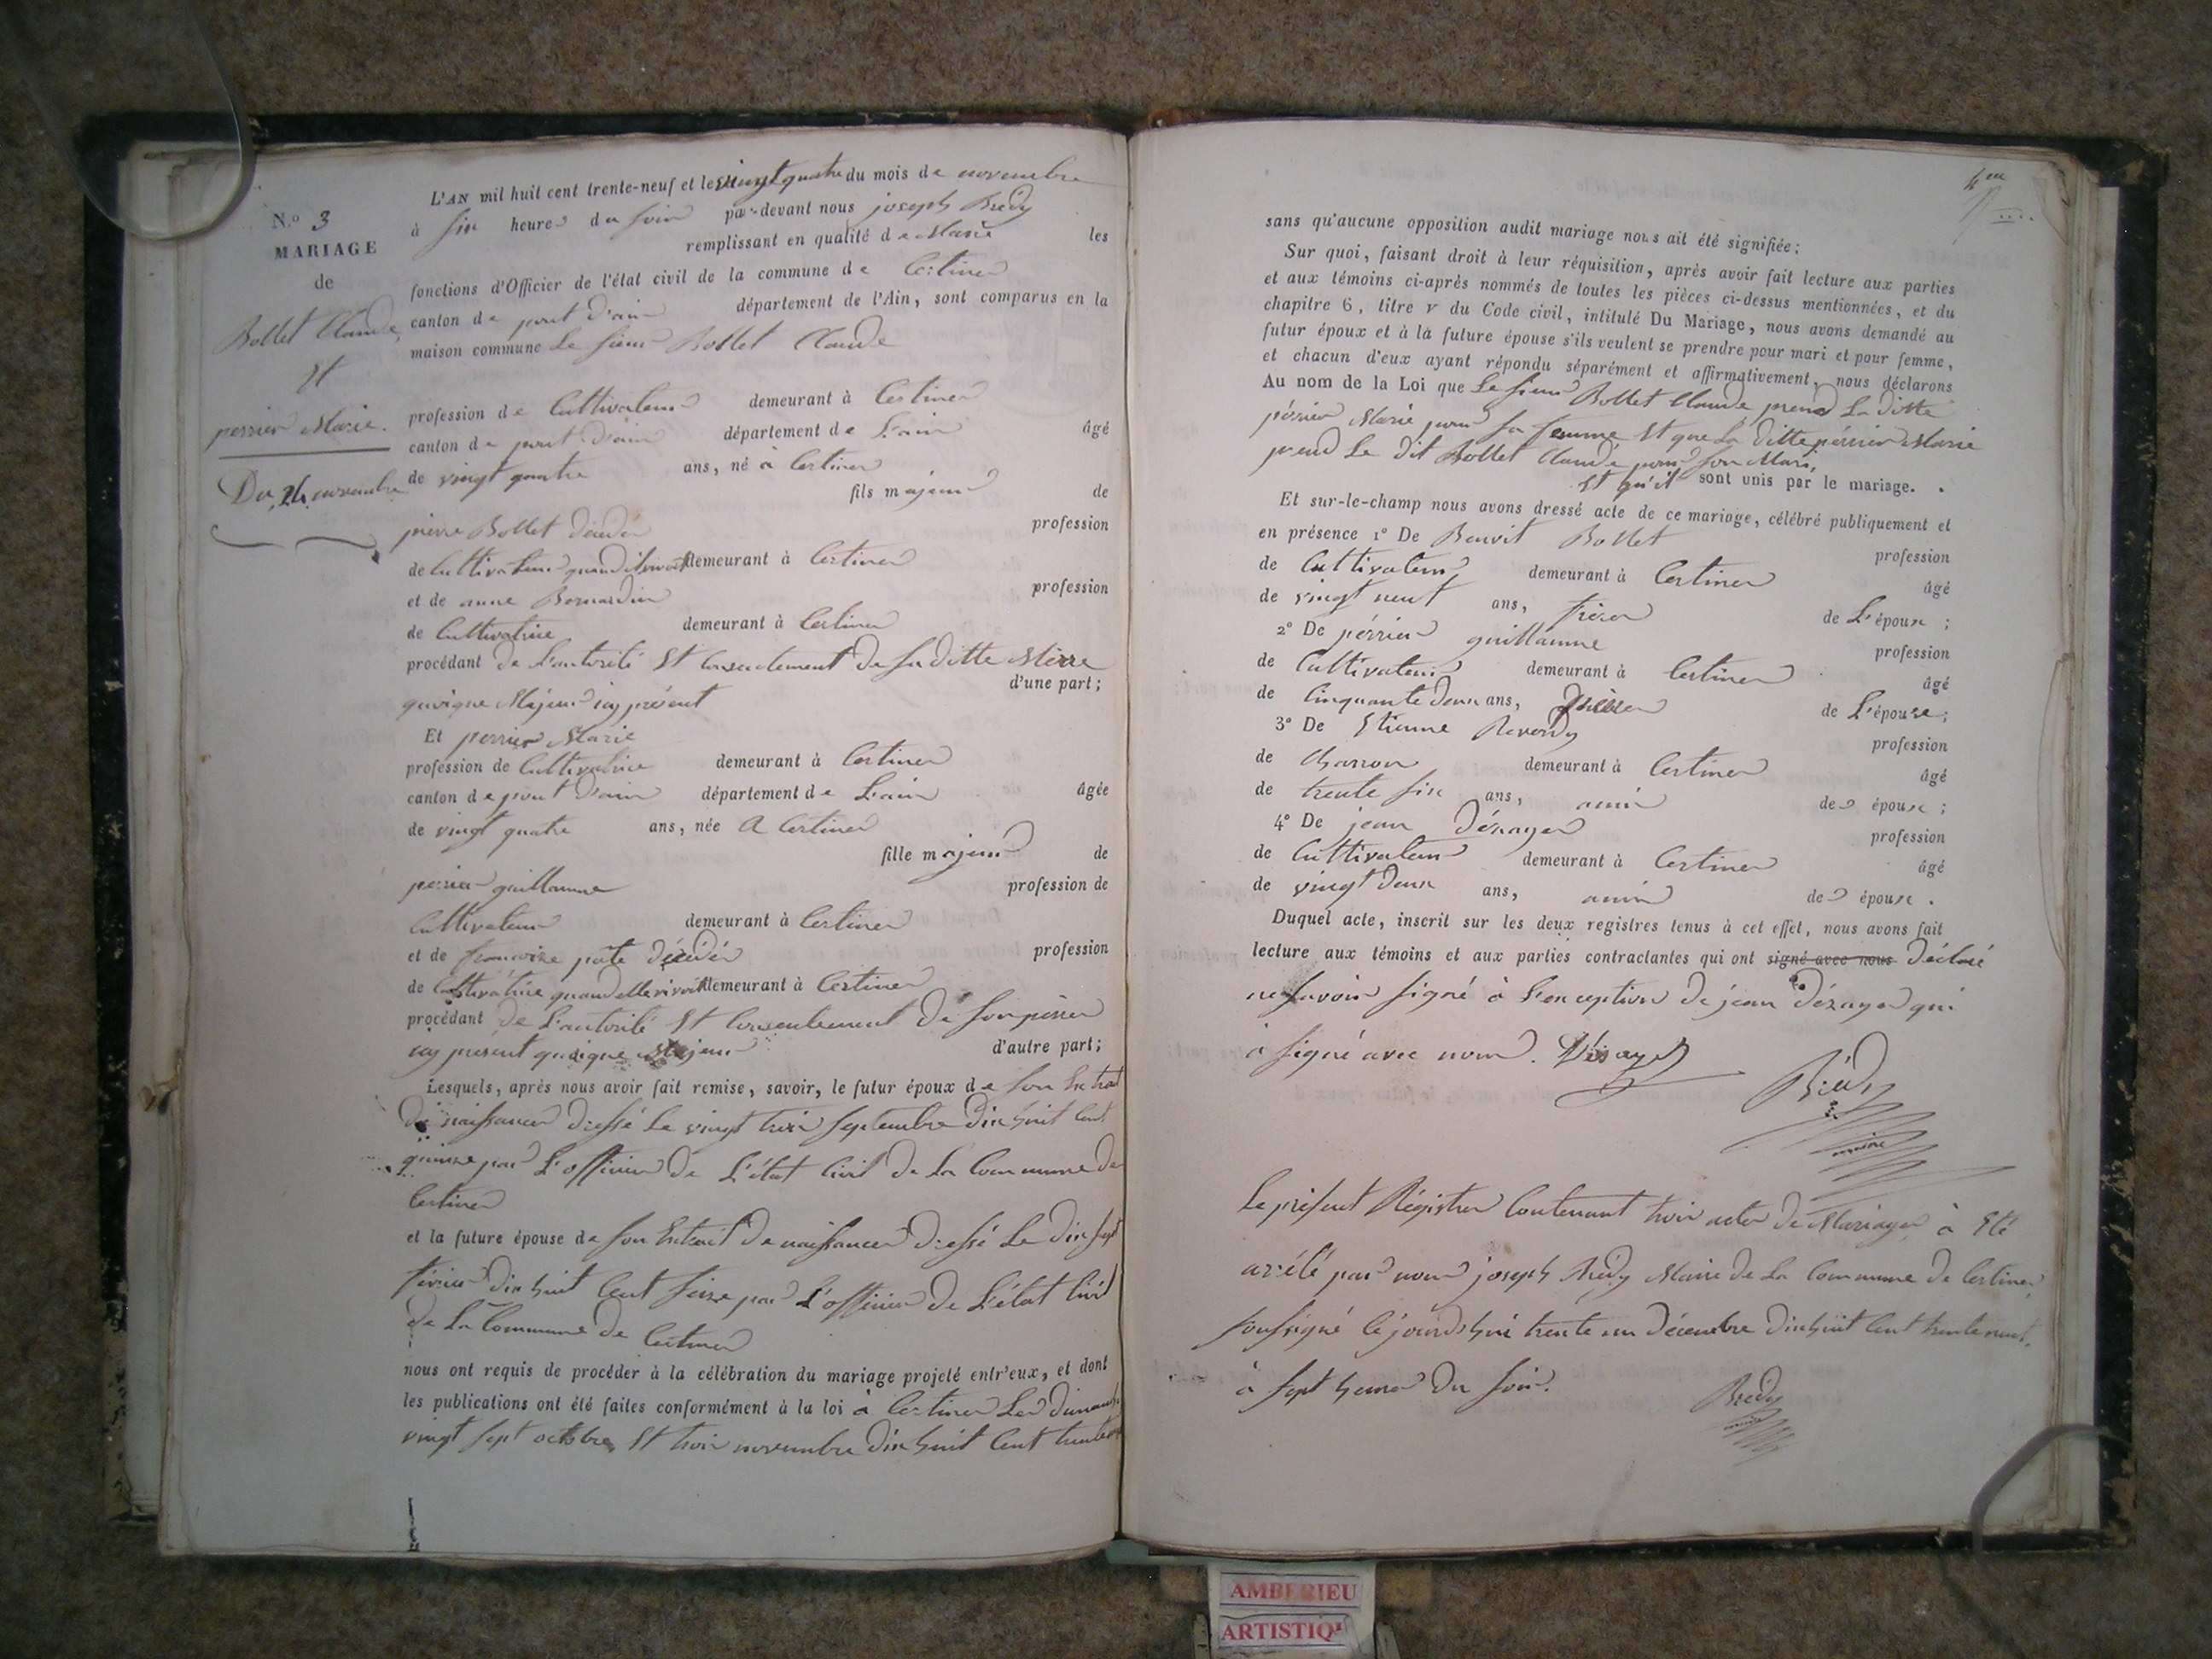 N.º 3
MARIAGE
de
Bollet Claude
Et
perrier Marie.
Du 24 novembre
L'AN mil huit cent trente-neuf et le vingt quatre du mois de novembre
à six heures du soir par-devant nous joseph Bredy
remplissant en qualité de Maire les
fonctions d'Officier de l'état civil de la commune de Certines
canton de pont d'ain département de l'Ain, sont comparus en la
maison commune Le sieur Bollet Claude
profession de Cultivateur demeurant à Certines
canton de pont d'ain département de L'ain âgé
de vingt quatre ans, né à Certines
fils majeur de
pierre Bollet profession
de Cultivateur quand il vivoit demeurant à Certines
et de anne Bernardin profession
de Cultivatrice demeurant à Certines
procédant de L'autorité Et Consentement de sa ditte Mère
d'une part;
quoique Majeur icy présent
Et perrier Marie
profession de Cultivatrice demeurant à Certines
canton de pont d'ain département de L'ain âgée
de vingt quatre ans, née A Certines
fille majeur de
perrier guillaume profession de
Cultivateur demeurant à Certines
et de francoise pate profession
de Cultivatrice quand elle vivoit demeurant à Certines
procédant de L'autorité Et Consentement de son père
icy present quoique Majeur d'autre part;
Lesquels, après nous avoir fait remise, savoir, le futur époux de son Extrait
de naissance dressé Le vingt trois septembre dix huit Cent
quinze par L'officier de L'état Civil de La Commune de
Certines
et la future épouse de son Extrait de naissance dressé Le dix sept
février dix huit Cent seize par L'officier de L'état Civil
de La Commune de Certines
nous ont requis de procéder à la célébration du mariage projeté entr'eux, et dont
les publications ont été faites conformément à la loi à Certines Les dimanche
vingt sept octobre Et trois novembre dix huit Cent trente
sans qu'aucune opposition audit mariage nous ait été signifiée;
Sur quoi, faisant droit à leur réquisition, après avoir fait lecture aux parties
et aux témoins ci-après nommés de toutes les pièces ci-dessus mentionnées, et du
chapitre 6, titre V du Code civil, intitulé Du Mariage, nous avons demandé au
futur époux et à la future épouse s'ils veulent se prendre pour mari et pour femme,
et chacun d'eux ayant répondu séparément et affirmativement, nous déclarons
Au nom de la Loi que Le sieur Bollet Claude prend La ditte
périer Marie pour sa femme Et que La ditte périer Marie
prend Le dit Bollet Claude pour son Mari,
Et qu'il sont unis par le mariage.
Et sur-le-champ nous avons dressé acte de ce mariage, célébré publiquement et
en présence 1º De Benoit Bollet profession
de Cultivateur demeurant à Certines âgé
de vingt neuf ans, frère de L'époux;
2º De périer guillaume profession
de Cultivateur demeurant à Certines âgé
de Cinquante deux ans, de L'épouse;
3º De Etienne Reverdy profession
de Charron demeurant à Certines âgé
de trente six ans, ami des époux;
4º De jean Désayer profession
de Cultivateur demeurant à Certines âgé
de vingt deux ans, ami des époux.
Duquel acte, inscrit sur les deux registres tenus à cet effet, nous avons fait
lecture aux témoins et aux parties contractantes qui ont signé avec nous Déclaré
ne savoir signé à L'exception de jean Désayer qui
à signé avec nous. Désayer
Bredy
maire
Le présent Régistre Contenant trois actes de Mariages à Eté
arrêté par nous joseph Bredy Maire de La Commune de Certines
soussigné Ce jourd'hui trente un Décembre dix huit Cent trente neuf.
à sept heures Du soir.
Bredy
AMBERIEU
ARTISTIQ